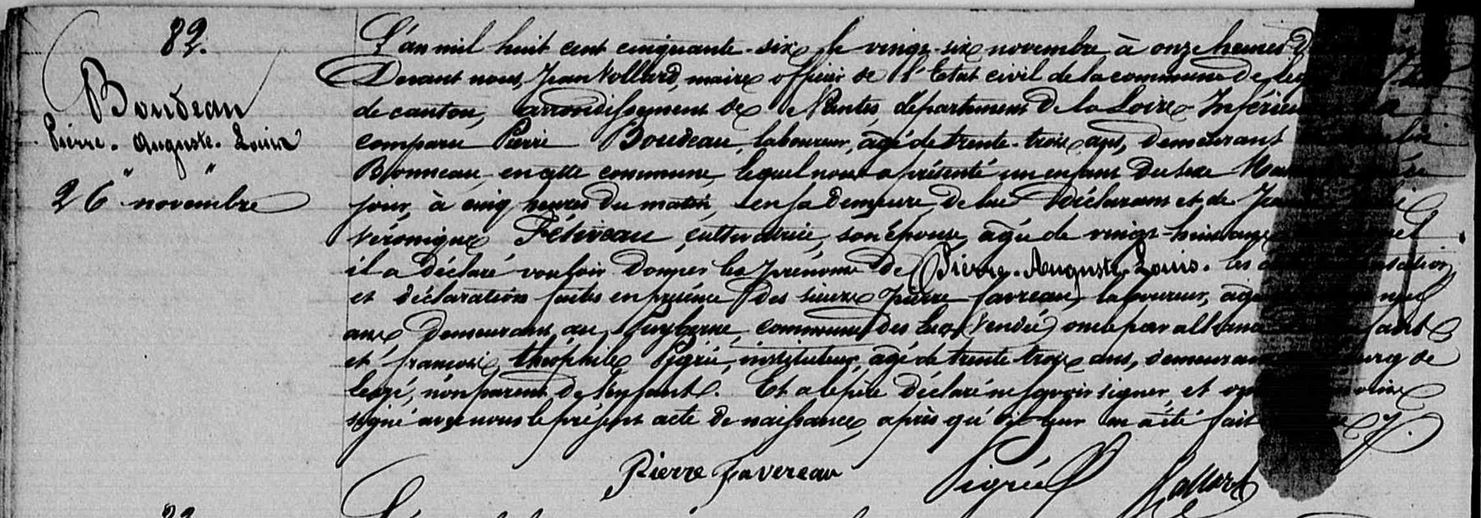 82.
Boudeau
Pierre-Auguste-Louis
26 novembre
L'an mil huit cent cinquante-six, le vingt-six novembre à onze heures du
Devant nous, Jean Vollard, maire officier de l'Etat civil de la commune de Legé
de canton, arrondissement de Nantes, département de la Loire-Inférieure a
comparu Pierre Boudeau, laboureur, âgé de trente-trois ans, demeurant
Bonneau, en cette commune, lequel nous a présenté un enfant du sexe
jour, à cinq heures du matin, en sa demeure, de lui déclarant et de
Véronique Fétiveau, cultivatrice, son épouse, âgée de vingt-huit ans
il a déclaré vouloir donner les prénoms de Pierre-Auguste-Louis. Les
et déclaration faites en présence des sieurs Pierre Favreau, laboureur, âgé
ans demeurant au commune des Lucs (Vendée) oncle par alliance
et françois, théophile Pigrée, instituteur, âgé de trente-trois ans, demeurant bourg de
Legé, non parent de l'enfant. Et a le père déclaré ne savoir signer, et
signé avec nous le présent acte de naissance, après qu'il leur en a été fait
Pierre Favereau Pigrée Vollard